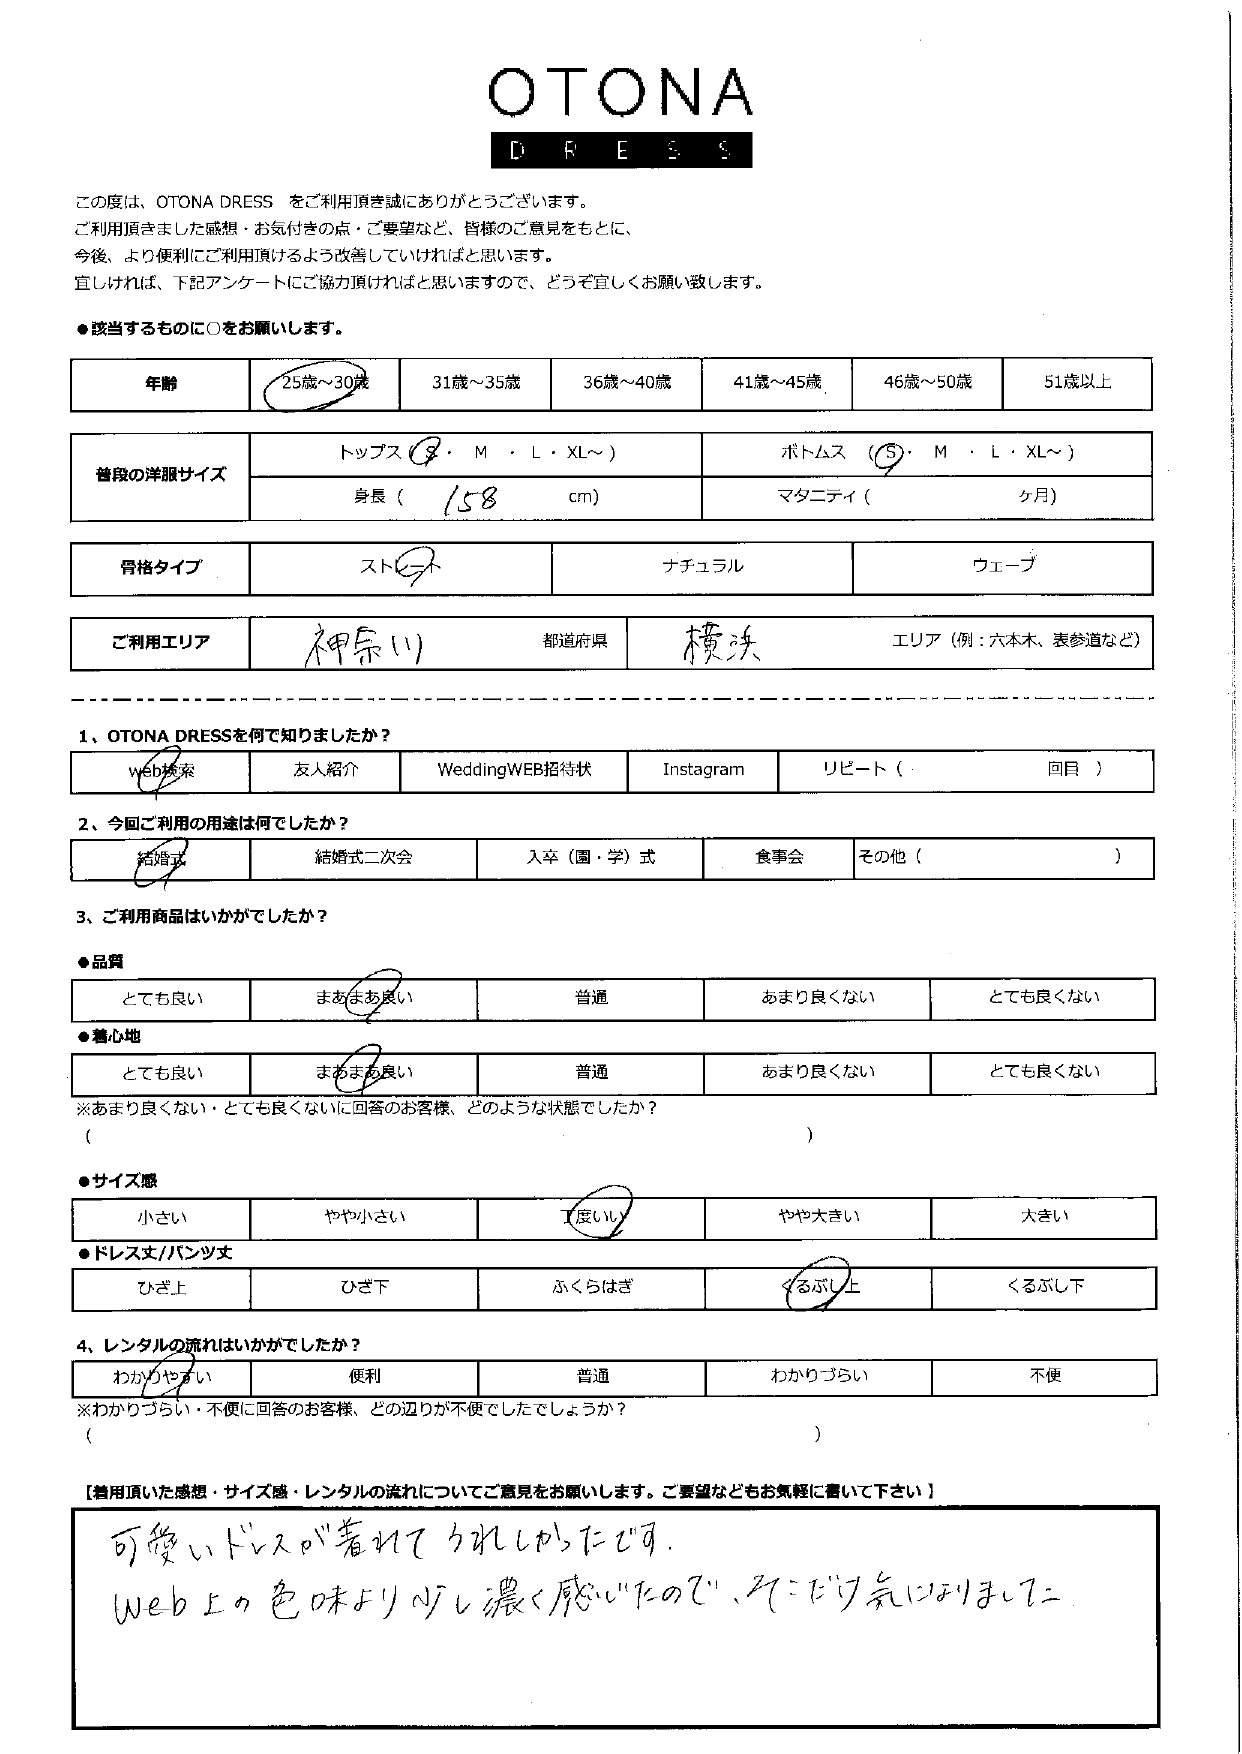 OTONA
DRESS
この度は、OTONA DRESS をご利用頂き誠にありがとうございます。
ご利用頂きました感想・お気付きの点・ご要望など、皆様のご意見をもとに、
今後、より便利にご利用頂けるよう改善していければと思います。
宜しければ、下記アンケートにご協力頂ければと思いますので、どうぞ宜しくお願い致します。
●該当するものに○をお願いします。
年齢 25歳～30歳 31歳～35歳 36歳～40歳 41歳～45歳 46歳～50歳 51歳以上
普段の洋服サイズ トップス（S・ M ・ L ・ XL～） ボトムス （S・ M ・ L ・ XL～）
身長（ 158 cm） マタニティ（ ヶ月）
骨格タイプ ストレート ナチュラル ウェーブ
ご利用エリア 神奈川 都道府県 横浜 エリア（例：六本木、表参道など）
1、OTONA DRESSを何で知りましたか？
web検索 友人紹介 WeddingWEB招待状 Instagram リピート（ 回目 ）
2、今回ご利用の用途は何でしたか？
結婚式 結婚式二次会 入卒（園・学）式 食事会 その他（ ）
3、ご利用商品はいかがでしたか？
●品質
とても良い まあまあ良い 普通 あまり良くない とても良くない
●着心地
とても良い まあまあ良い 普通 あまり良くない とても良くない
※あまり良くない・とても良くないに回答のお客様、どのような状態でしたか？
（ ）
●サイズ感
小さい やや小さい 丁度いい やや大きい 大きい
●ドレス丈/パンツ丈
ひざ上 ひざ下 ふくらはぎ くるぶし上 くるぶし下
4、レンタルの流れはいかがでしたか？
わかりやすい 便利 普通 わかりづらい 不便
※わかりづらい・不便に回答のお客様、どの辺りが不便でしたでしょうか？
（ ）
【着用頂いた感想・サイズ感・レンタルの流れについてご意見をお願いします。ご要望などもお気軽に書いて下さい】
可愛いドレスが着れてうれしかったです.
Web上の色味より少し濃く感じたので、そこだけ気になりました